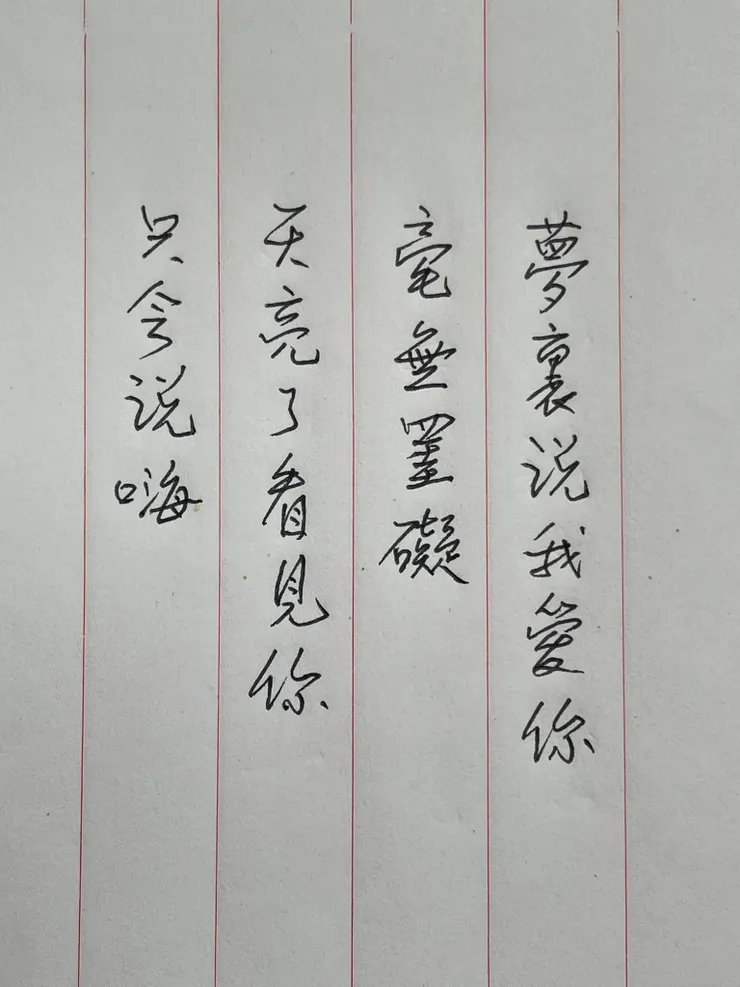 夢裏说我愛你
毫無罣礙
天亮了看見你
只会说嗨